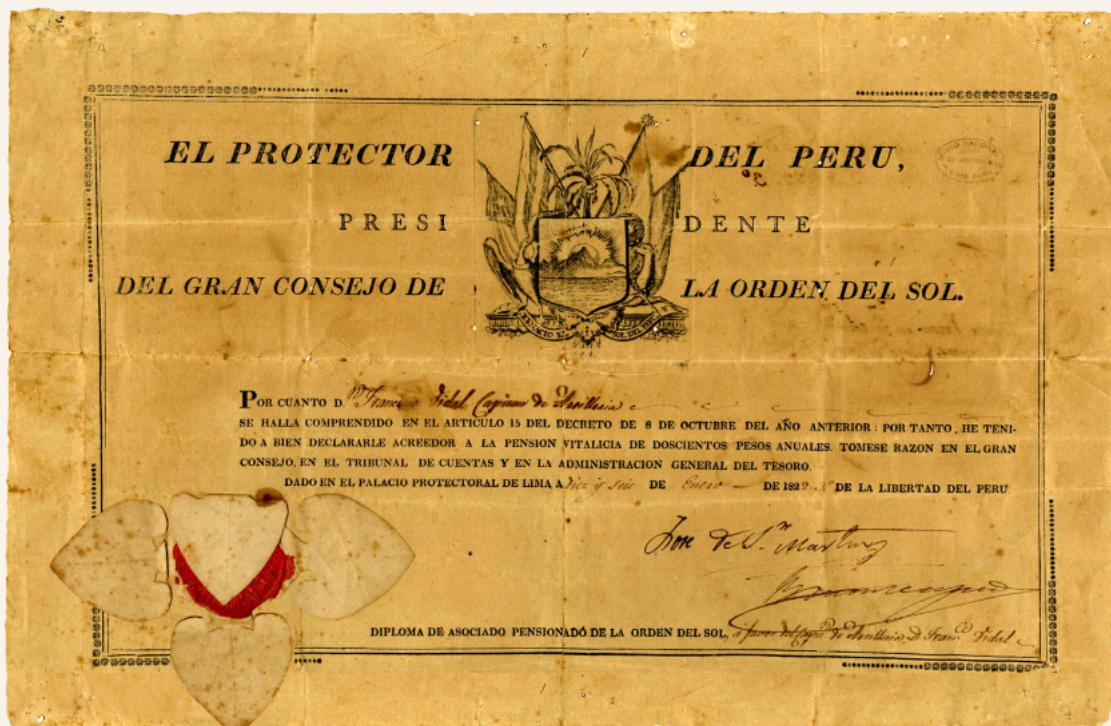 EL PROTECTOR DEL PERU,
PRESI DENTE
DEL GRAN CONSEJO DE LA ORDEN DEL SOL.
RENACIO EL SOL DEL PERU
POR CUANTO D.n Francisco Vidal Capitan de Artilleria
SE HALLA COMPRENDIDO EN EL ARTICULO 15 DEL DECRETO DE 8 DE OCTUBRE DEL AÑO ANTERIOR: POR TANTO, HE TENI-
DO A BIEN DECLARARLE ACREEDOR A LA PENSION VITALICIA DE DOSCIENTOS PESOS ANUALES. TOMESE RAZON EN EL GRAN
CONSEJO, EN EL TRIBUNAL DE CUENTAS Y EN LA ADMINISTRACION GENERAL DEL TESORO.
DADO EN EL PALACIO PROTECTORAL DE LIMA A diez y seis DE Enero DE 1822 3º DE LA LIBERTAD DEL PERU
Jose de Sn Martin
DIPLOMA DE ASOCIADO PENSIONADO DE LA ORDEN DEL SOL, á favor del Capn de Artilleria D. Franco Vidal